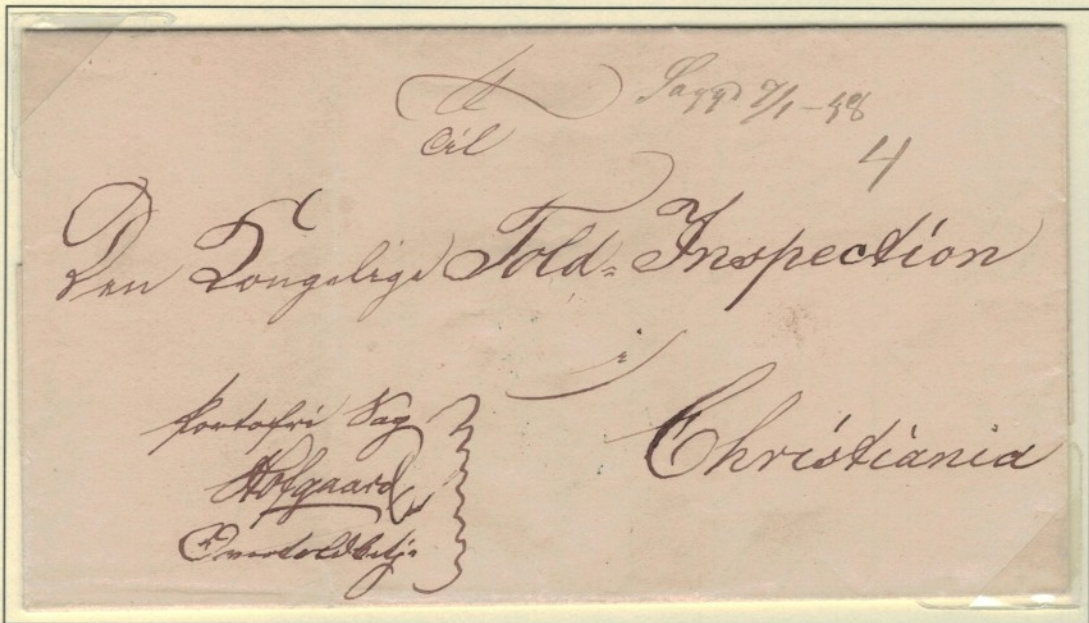 7/1-48
4
Til
Den Kongelige Told-Inspection
i
Christiania
Portofri Sag
Hofgaard
Overtoldbetj.